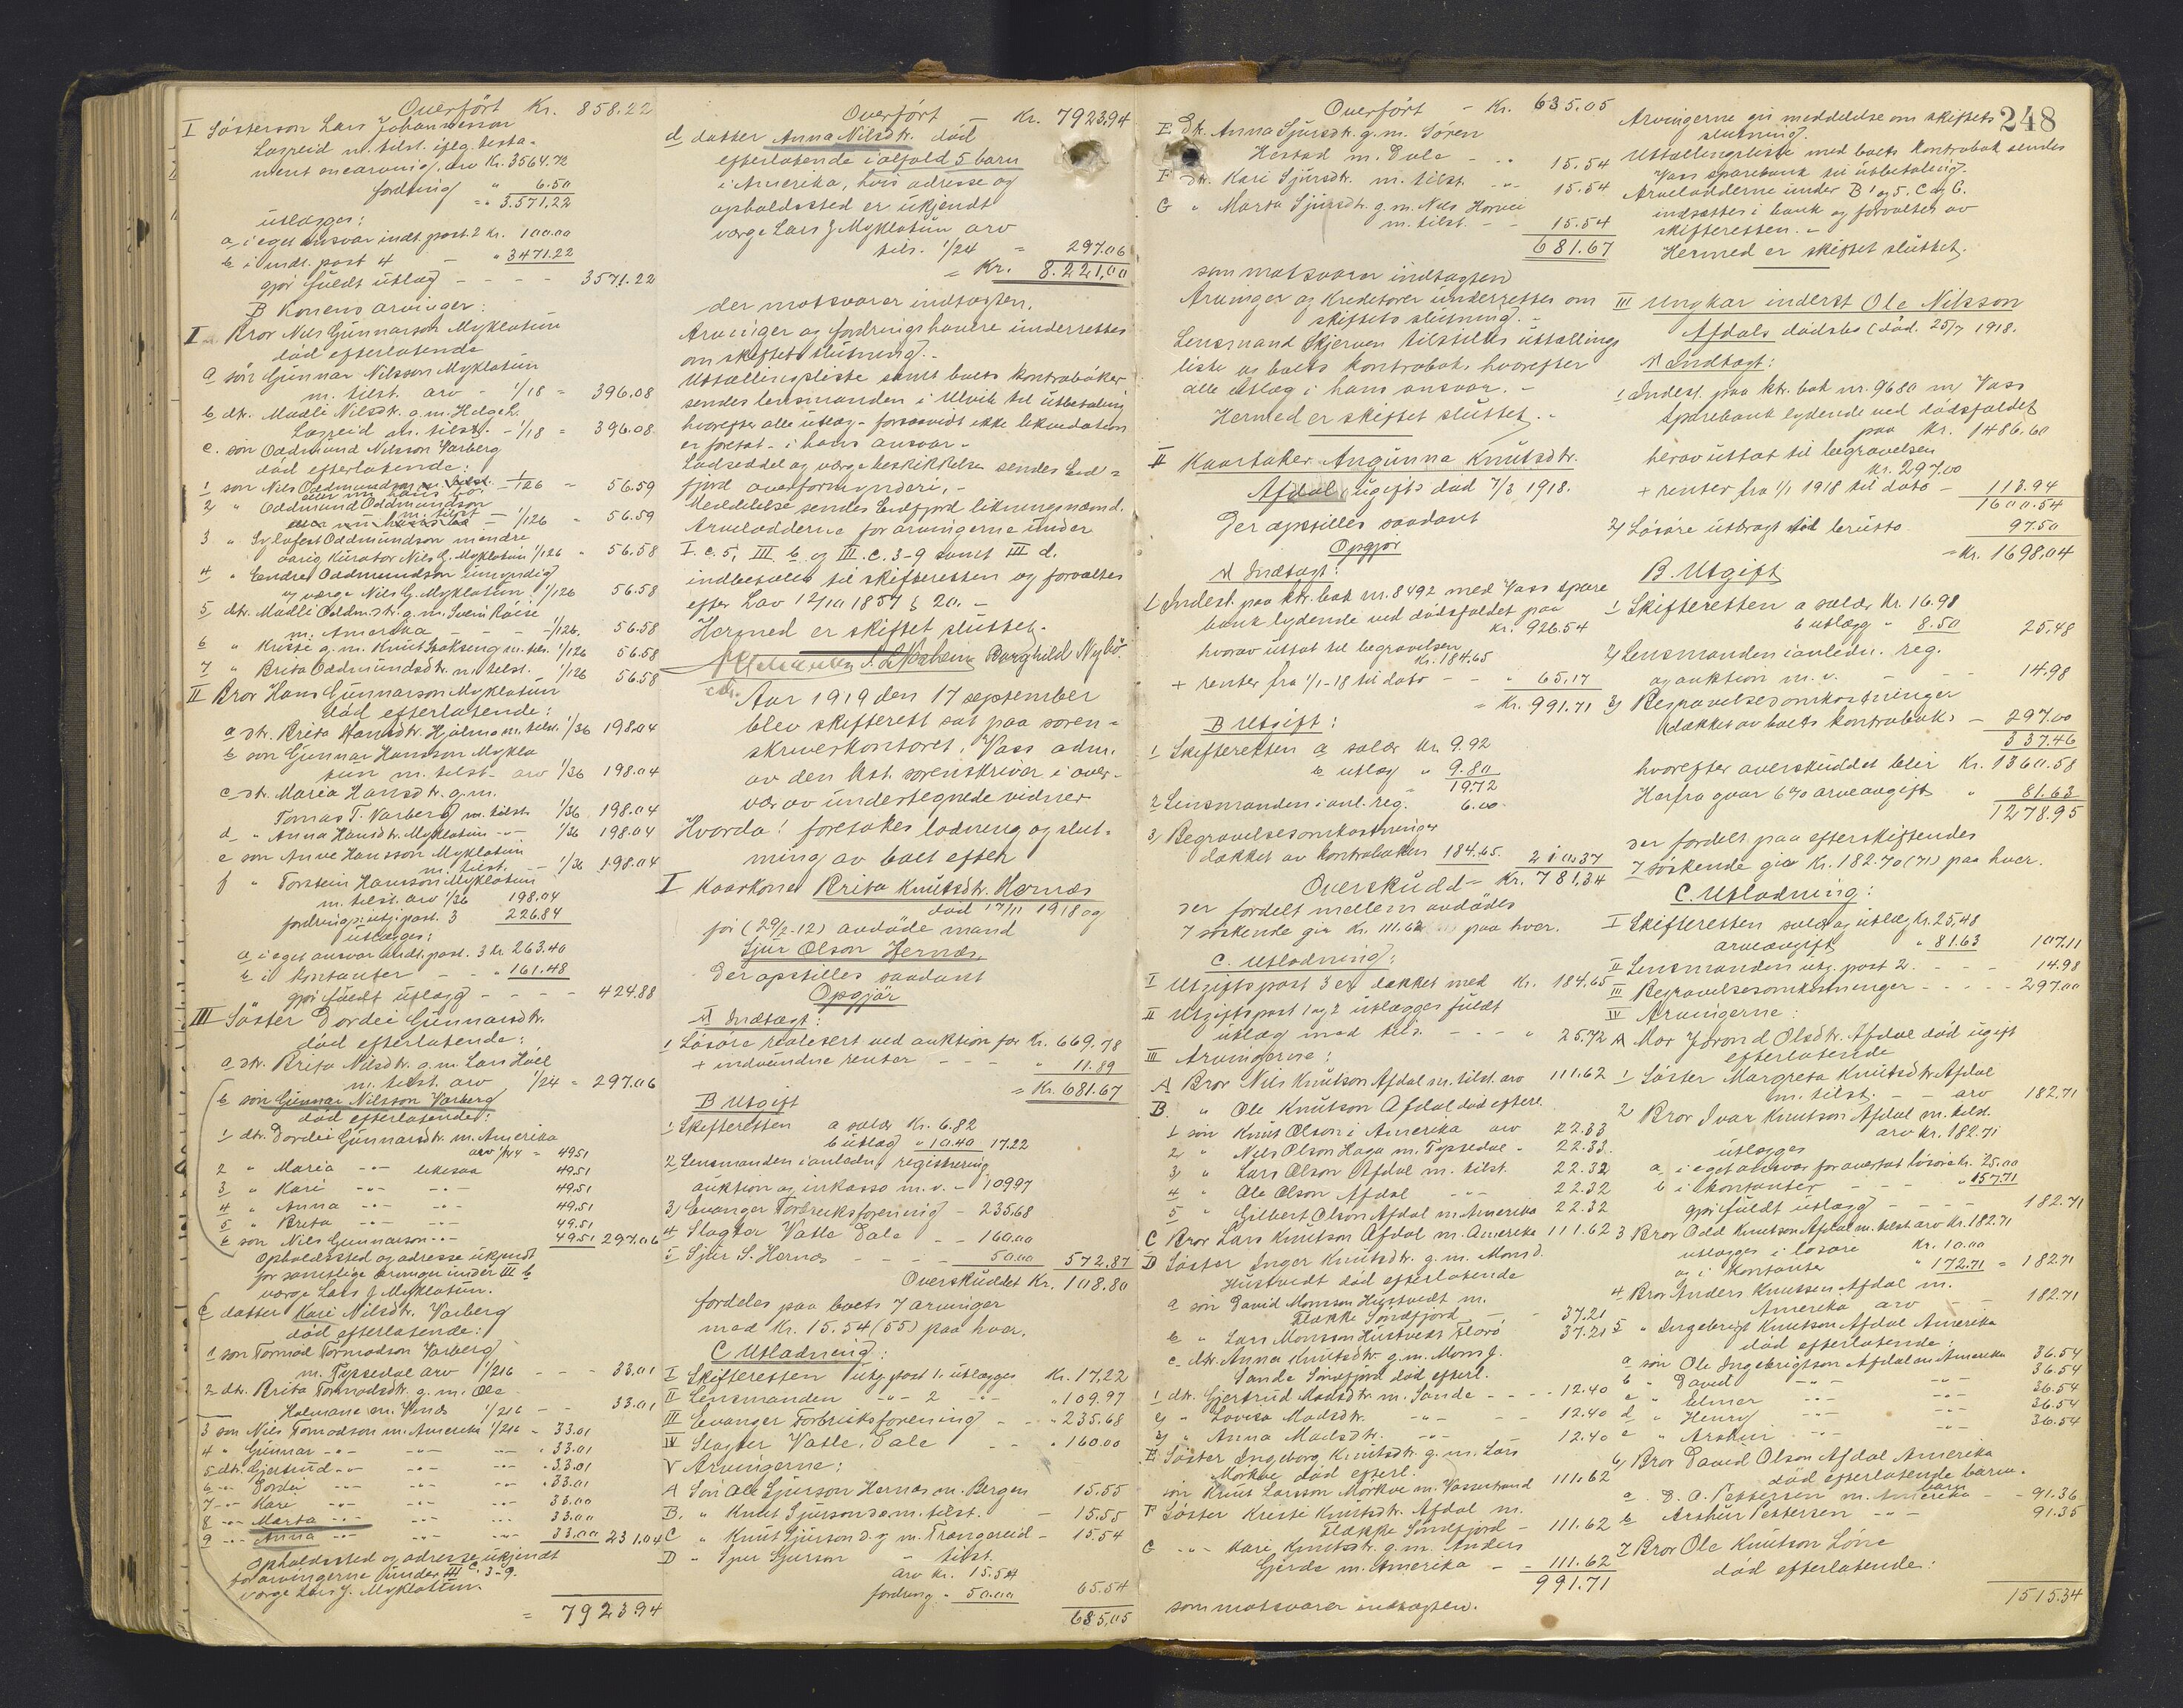 Overført Kr. 858.22
I Søsterson Lars Johannesson
Lazreid m. tilst. iflg. testa-
ment enearving, arv Kr. 3564.72
fordring " 6.50
= " 3.571,22
utlægges:
a i eget ansvar indt. post. 2 kr. 100.00
b i indt. post 4 - " 3471.22
gjør fuldt utlæg - - - - 3571.22
B Konens arvinger:
I Bror Nils Gunnarson Myklatun
død efterlatende
a søn Gunnar Nilsson Myklatun
m. tilst. arv - 1/18 = 396.08
b dtr. Madli Nilsdtr. g.m. Helge L.
Lazreid m. tilst. - 1/18 = 396.08
c. søn Oddmund Nilsson Varberg
død efterlatende:
1 søn Nils Oddmundson m. tilst. - 1/126 = 56.59
eller nu hans bo.
2 " Oddmund Oddmundson
m. tilst - 1/126 " 56.59
3 " Sylvfest Oddmundson mindre
aarig kurator Nils G. Myklatun 1/126 " 56.58
4 " Endre Oddmundson umyndig
og værge Nils G. Myklatun 1/126 56.58
5 dtr. Madli Oddm.dtr. g.m. Svein Røise
m. Amerika - - - 1/126. 56.58
6 " Kristi g.m. Knut m. tilst. 1/126 56.58
7 " Brita Oddmundsdtr. m. tilst. 1/126 56.58
II Bror Hans Gunnarson Myklatun
død efterlatende:
a dtr. Brita Hansdtr. Hjølmo m. tilst. 1/36 198.04
b søn Gunnar Hansson Mykla
tun m. tilst. arv 1/36 198.04
c dtr. Maria Hansdtr. g.m.
Tomas T. Varberg m. tilst. 1/36 198.04
d " Anna Hansdtr. Myklatun -"- 1/36 198.04
e søn Anve Hansson Myklatun
m. tilst. - 1/36 198.04
f " Torstein Hansson Myklatun
m. tilst. arv 1/36 198.04
fordring utg. post. 3 226.84
utlægges:
a i eget ansvar indt. post. 3 kr 263.40
b i kontanter - - " 161.48
gjør fuldt utlægg - - - - 424.88
III Søster Dordei Gunnarsdtr.
død efterlatende:
a dtr. Brita Nilsdtr. g.m. Lars Hæl
m. tilst. arv 1/24 = 297.06
b søn Gunnar Nilsson Varberg
død efterlatende:
1 dtr. Dordei Gunnarsdtr. m. Amerika
arv 1/144 = 49.51
2 " Maria -"- likesaa 49.51
3 " Kari -"- -"- 49.51
4 " Anna -"- -"- 49.51
5 " Brita -"- -"- 49.51
6 søn Nils Gunnarson -"- 49.51 297.06
Opholdssted og adresse ukjendt
for samtlige arvinger under III b
værge Lars J. Myklatun.
c datter Kari Nilsdtr. Varberg
død efterlatende:
1 søn Tormod Tormodson Varberg
m. Tyssedal arv 1/216 - - 33.01
2 dtr. Brita Tormodsdtr. g.m. Ole
Halmane m. 1/216 - - 33.01
3 søn Nils Tormodson m. Amerika 1/216 - 33.01
4 " Gunnar -"- -"- -"- " 33.01
5 dtr. Gjertrud -"- -"- -"- " 33.01
6 -"- Dordei -"- -"- -"- " 33.01
7 -"- Kari -"- -"- -"- 33.00
8 -"- Marta -"- -"- -"- 33.00
9 -"- Anna -"- -"- -"- 33.00 231.04
Opholdssted og adresse ukjendt
for arvingerne under III c. 3-9.
værge Lars J. Myklatun.
= 7923.94
Overført - Kr. 7923.94
d datter Anna Nilsdtr. død
efterlatende ialfald 5 barn
i Amerika, hvis adresse og
opholdssted er ukjendt
værge Lars J. Myklatun arv
tils. 1/24 = 297.06
= Kr. 8.221,00
der motsvarer indtægten.
Arvinger og fordringshavere underrettes
om skiftets slutning.-
Utfællingsliste samt boets kontrabøker
sendes lensmanden i Ulvik til utbetaling
hvorefter alle utlæg - forsaavidt ikke likvidation
er foretat - i hans ansvar.-
Lodseddel og værgebeskikkelse sendes Eid=
fjord overformynderi.-
Meddelelse sendes Eidfjord likningsnævnd.
Arvelodderne for arvingerne under
I. c. 5, III. b og III. c. 3-9 samt III d.
indbetales til skifteretten og forvaltes
efter Lov 12/10 1857 § 20.-
Hermed er skiftet sluttet.
Borghild Nybø
Aar 1919 den 17 september
blev skifterett sat paa soren-
skriverkontoret, Vass adm.
av den kst. sorenskriver i over-
vær av undertegnede vidner
Hvorda! foretakes lodning og slut-
ning av boet efter
I Kaarkone Brita Knutsdtr. Hernæs
død 17/11 1918 og
før (29/2-12) avdøde mand
Sjur Olson Hernæs.
Der opstilles saadant
Opgjør
A Indtægt:
1 Løsøre realisert ved auktion for Kr. 669.78
+ indvundne renter - - - " 11.89
= Kr. 681.67
B Utgift
1 Skifteretten a salær Kr. 6.82
b utlæg " 10.40 17.22
2 Lensmanden i anledn. registrering
auktion og inkasso m.v. - 109.97
3) Evanger Forbruksforening - 235.68
4 Slagter Vatle Dale - - 160.00
5 Sjur S. Hernæs - - - 50.00 572,87
Overskuddet Kr. 108.80
fordeles paa boets 7 arvinger
med Kr. 15.54 (55) paa hver.
C Utlodning:
I Skifteretten utg. post 1. utlægges Kr. 17,22
II Lensmanden -"- 2 -"- " 109.97
III Evanger Forbruksforening - - " 235.68
IV Slagter Vatle, Dale - - " 160.00
V Arvingerne:
A Søn Ole Sjurson Hernæs m. Bergen 15.55
B. " Knut Sjurson d.e. m. tilst. - 15.55
C " Knut Sjurson d.y. m. Trængereid - 15.54
D " Sjur Sjurson - tilst.
arv kr. 15.54
fordring " 50.00 65.54
635,05
Overført - Kr. 635.05
E Dtr. Anna Sjursdtr. g.m. Søren
Herstad m. Dale - -- 15.54
F Dtr. Kari Sjursdtr. m. tilst. -"- 15.54
G " Marta Sjursdtr. g.m. Nils Horvei
m. tilst. - - 15.54
681.67
som motsvarer indtægten
Arvinger og kreditorer underrettes om
skiftets slutning.-
Lensmand Skjerven tilstilles utfællings
liste og boets kontrabok, hvorefter
alle utlæg i hans ansvar.-
Hermed er skiftet sluttet.-
II Kaartaker Angunna Knutsdtr.
Afdal ugift død 7/3 1918.
Der opstilles saadant
Opgjør
A Indtægt:
1 Indest. paa ktr. bok nr. 8492 med Vass spare
bank lydende ved dødsfaldet paa
kr. 926.54
hvorav uttat til begravelsen
Kr. 184.65
+ renter fra 1/1-18 til dato - - " 65,17
= Kr. 991.71
B Utgift:
1 Skifteretten a salær kr. 9.92
b utlæg " 9.80
19.72
2 Lensmanden i anl. reg. 6.00
3) Begravelsesomkostninger
dækket av kontraboken 184.65. 210.37
Overskudd = Kr. 781,34
der fordelt mellem avdødes
7 søskende gir Kr. 111.62 paa hver.
C. Utlodning:
I Utgiftspost 3 er dækket med Kr. 184.65
II Utgiftspost 1 og 2 utlægges fuldt
utlæg med tils. - - - " 25.72
III Arvingerne:
A Bror Nils Knutson Afdal m. tilst. arv 111.62
B. " Ole Knutson Afdal død efterl.
1 søn Knut Olson i Amerika arv 22.33
2) " Nils Olson Haga m. Tyssedal - 22.33.
3) " Lars Olson Afdal m. tilst. 22.32
4 " Ole Olson Afdal -"- 22.32
5 " Gilbert Olson Afdal m. Amerika 22.32
C Bror Lars Knutson Afdal m. Amerika 111.62
D Søster Inger Knutsdtr. g.m. Mons D.
Hustvedt død efterlatende
a søn David Monsson Hustvedt m.
Flække Søndfjord - 37.21
b " Lars Monsson Hustvedt Florø 37.21
c dtr. Anna Knutsdtr g.m. Mons J.
Sande Søndfjord død efterl.
1 dtr. Gjertrud Madsdtr m. Sande - - - 12.40
2) " Lovisa Madsdtr. -"- - - 12.40
3) " Anna Madsdtr. -"- 12.40
E Søster Ingeborg Knutsdtr. g.m. Lars
Mørkve død efterl.
søn Knut Larsson Mørkve m. Vasserstrand 111.62
F Søster Kristi Knutsdtr. Afdal m.
Flække Søndfjord - 111.62
G -"- Kari Knutsdtr. g.m. Anders
Gjerde m. Amerika - - 111.62
991.71
som motsvarer indtægten.
248
Arvingerne gis meddelelse om skiftets
slutning.
Utfællingsliste med boets kontrabok sendes
Vass sparebank til utbetaling.
Arvelodderne under B 1 og 5. C og G.
indsættes i bank og forvaltes av
skifteretten.-
Hermed er skiftet sluttet.
III Ungkar inderst Ole Nilsson
Afdals dødsbo (død. 25/7 1918.
A Indtægt:
1 Indest. paa ktr. bok nr. 9680 m/ Vass
Sparebank lydende ved dødsfaldet
paa Kr. 1486.60
herav uttat til begravelsen
kr. 297.00
+ renter fra 1/1 1918 til dato - 113.94
1600.54
2) Løsøre utbragt til brutto 97.50
= Kr. 1698.04
B. Utgift
1 Skifteretten a salær Kr. 16.98
b utlægg " 8.50 25.48
2) Lensmanden i anledn. reg.
og auktion m.v. - - - 14.98
3) Begravelsesomkostninger
dækket av boets kontrabok - 297.00
337.46
hvorefter overskuddet blir Kr. 1360.58
Herfra gaar 6% arveavgift " 81.63
1278.95
der fordelt paa efterskiftendes
7 søskende gir Kr. 182.70 (71) paa hver.
C. Utlodning:
I Skifteretten salær og utlæg Kr. 25,48
arveavgift " 81.63 107.11
II Lensmanden utg. post 2. - - - 14.98
III Begravelsesomkostninger - - - - 297.00
IV Arvingerne:
A Mor Jorond Olsdtr. Afdal død ugift
efterlatende
1 Søster Margreta Knutsdtr Afdal
m. tilst. - - arv 182.71
2 Bror Ivar Knutson Afdal m. tilst.
arv kr. 182.71
utlægges
a i eget ansvar for overtat løsøre kr. 25.00
b i kontanter - - - " 157.71
gjør fuldt utlægg - - - - 182.71
3 Bror Odd Knutson Afdal m. tilst arv kr. 182.71
utlægges i løsøre Kr. 10.00
og i kontante " 172.71 = 182.71
4 Bror Anders Knutsson Afdal m.
Amerika arv - - 182.71
5 " Ingebrigt Knutson Afdal Amerika
død efterlatende:
a søn Ole Ingebrigtson Afdal m Amerika 36.54
b " David -"- -"- 36.54
c " Elmer -"- -"- 36.54
d " Henry -"- -"- 36.54
e " Arthur -"- -"- 36.54
6) Bror David Olson Afdal Amerika
død efterlatende barn.
a D. O. Pettersen m. Amerika - - 91.36
b Arthur Pettersen -"- 91.35
7 Bror Ole Knutson Løne
død efterlatende:
1515.34